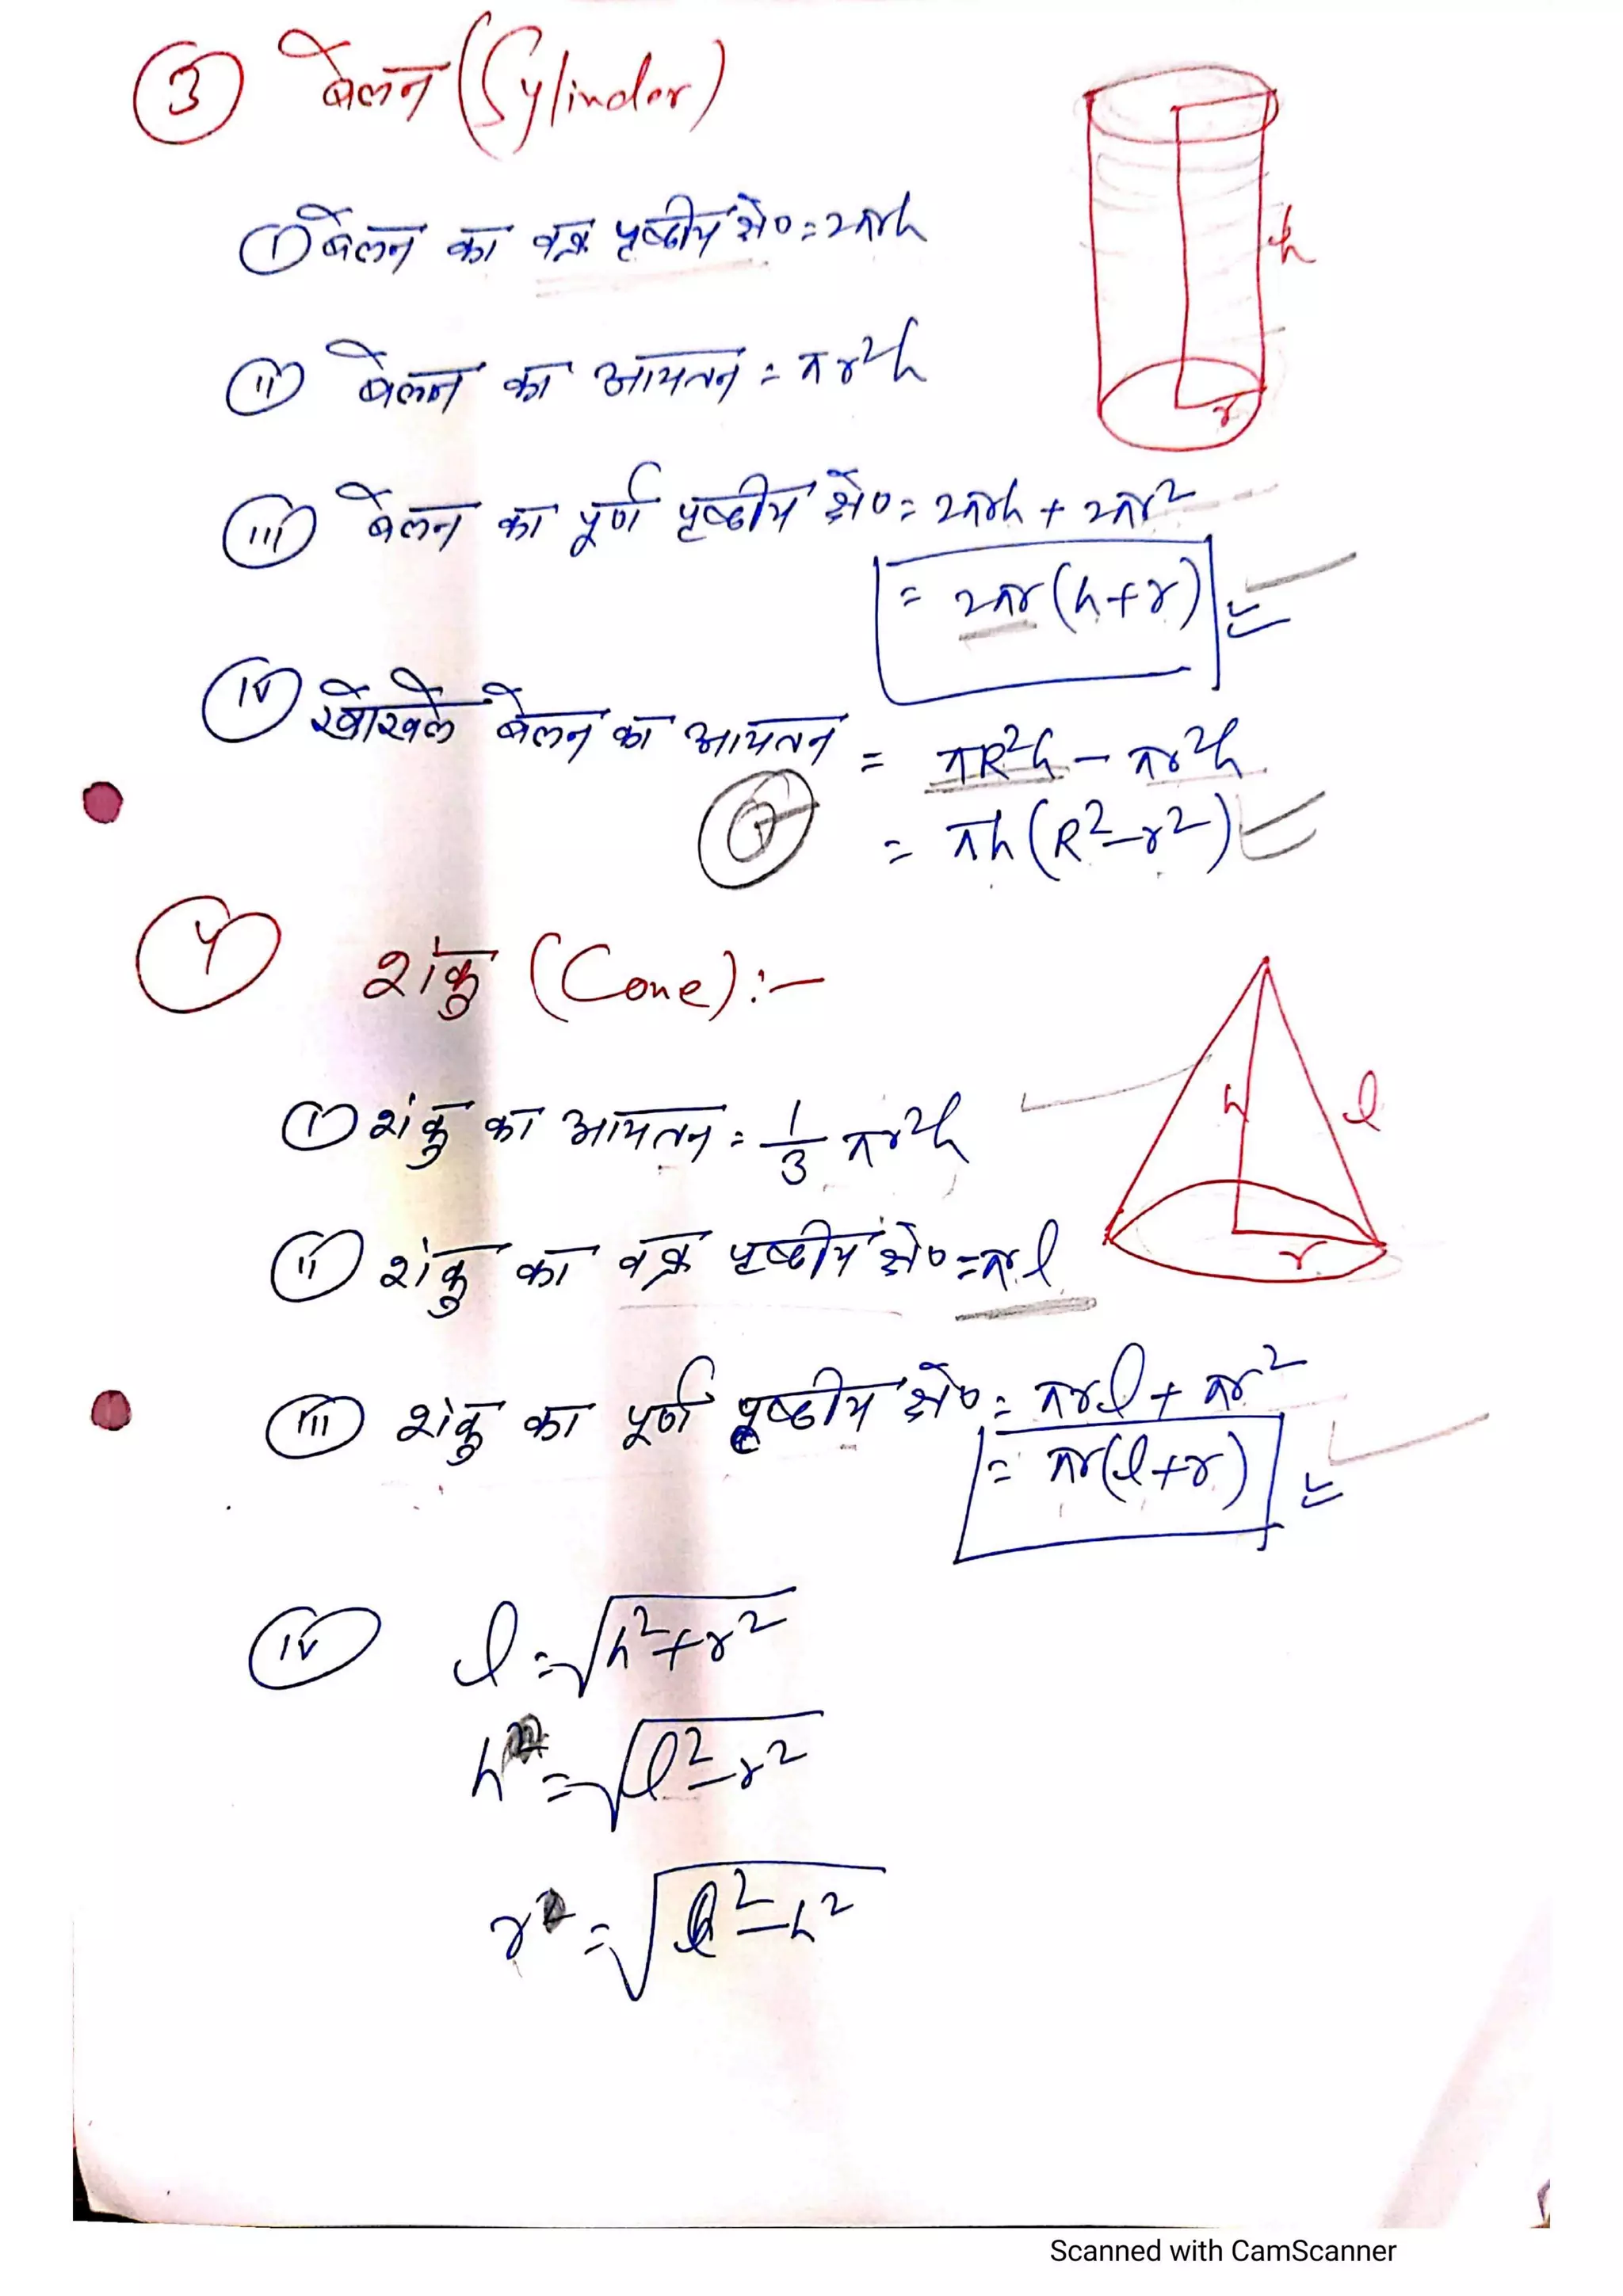 ③ बेलन (Cylinder)
① बेलन का वक्र पृष्ठीय क्षे० = 2πrh
h
ⅱ बेलन का आयतन = πr²h
r
ⅲ बेलन का पूर्ण पृष्ठीय क्षे० = 2πrh + 2πr²
= 2πr(h+r)
ⅳ खोखले बेलन का आयतन = πR²h - πr²h
= πh(R²-r²)
④ शंकु (Cone):-
① शंकु का आयतन = 1/3 πr²h
h
l
ⅱ शंकु का वक्र पृष्ठीय क्षे० = πrl
r
ⅲ शंकु का पूर्ण पृष्ठीय क्षे० = πrl + πr²
= πr(l+r)
ⅳ l = √h²+r²
h = √l²-r²
r = √l²-h²
Scanned with CamScanner